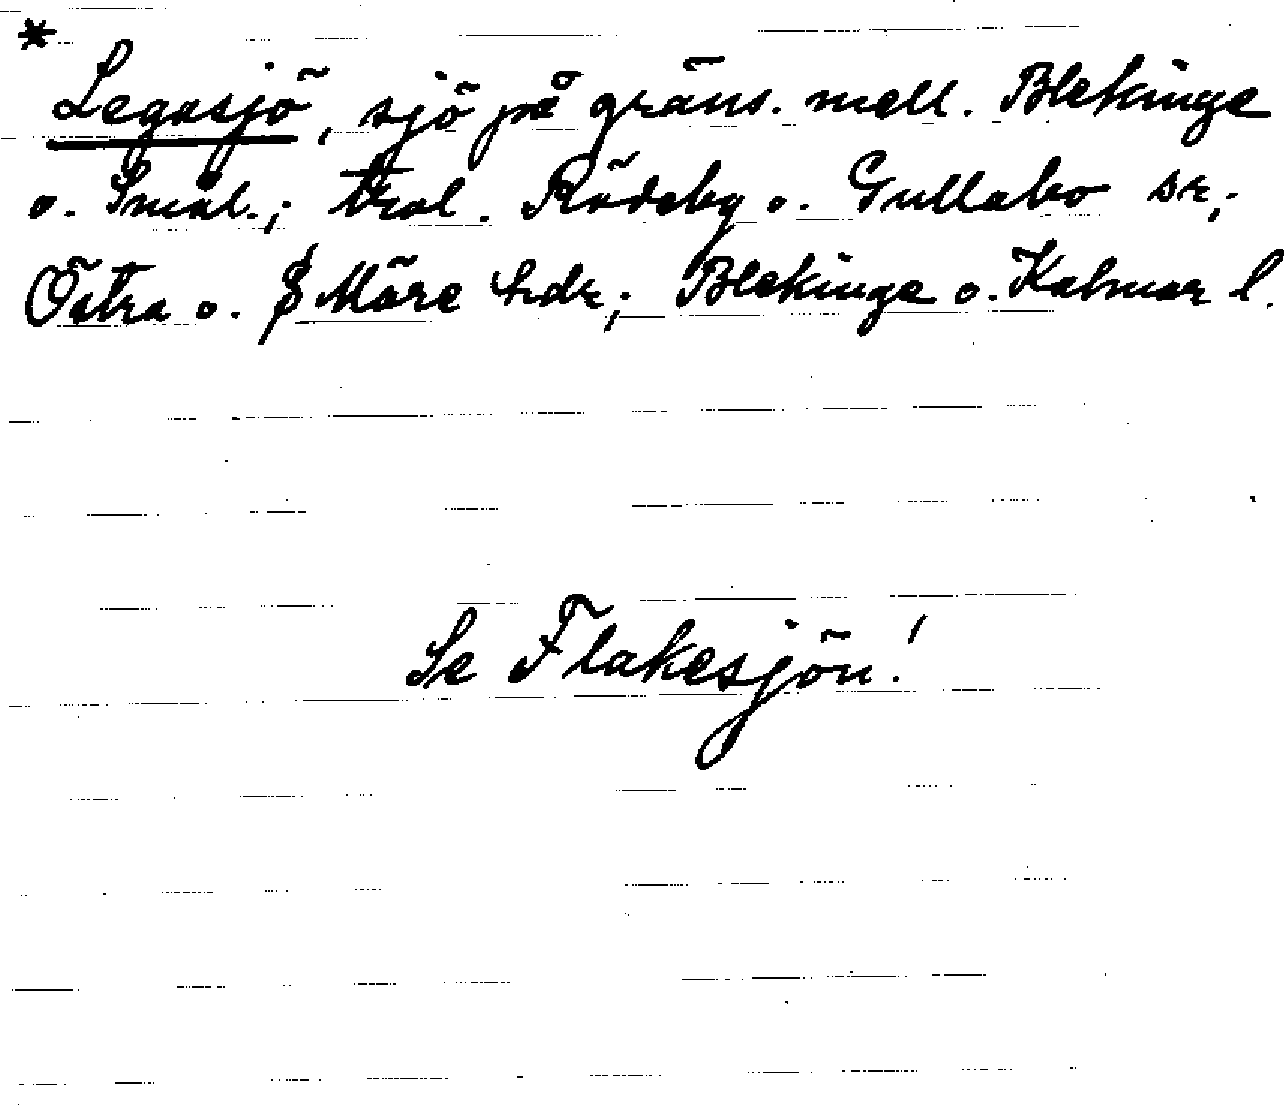 * Legasjö, sjö på gräns. mell. Blekinge
o. Smål.; trol. Rödeby o. Gullabo sr,;
Östra o. S Möre hdr,; Blekinge o. Kalmar l.
Se Flakesjön!